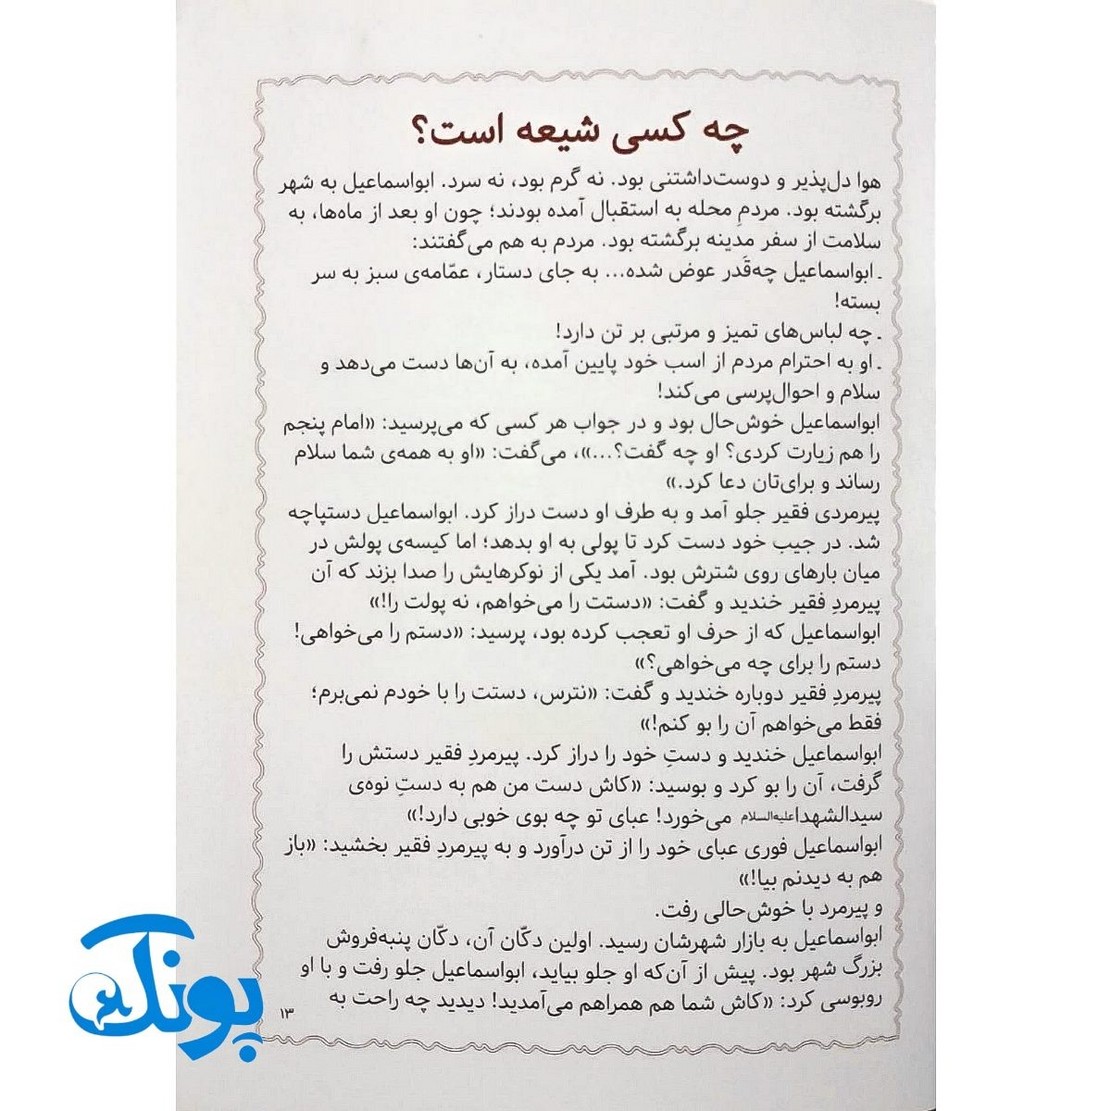 چه کسی شیعه است؟
هوا دل‌پذیر و دوست‌داشتنی بود. نه گرم بود، نه سرد. ابواسماعیل به شهر
برگشته بود. مردمِ محله به استقبال آمده بودند؛ چون او بعد از ماه‌ها، به
سلامت از سفر مدینه برگشته بود. مردم به هم می‌گفتند:
ـ ابواسماعیل چه‌قَدر عوض شده... به جای دستار، عمّامه‌ی سبز به سر
بسته!
ـ چه لباس‌های تمیز و مرتبی بر تن دارد!
ـ او به احترام مردم از اسب خود پایین آمده، به آن‌ها دست می‌دهد و
سلام و احوال‌پرسی می‌کند!
ابواسماعیل خوش‌حال بود و در جواب هر کسی که می‌پرسید: «امام پنجم
را هم زیارت کردی؟ او چه گفت؟...»، می‌گفت: «او به همه‌ی شما سلام
رساند و برای‌تان دعا کرد.»
پیرمردی فقیر جلو آمد و به طرف او دست دراز کرد. ابواسماعیل دستپاچه
شد. در جیب خود دست کرد تا پولی به او بدهد؛ اما کیسه‌ی پولش در
میان بارهای روی شترش بود. آمد یکی از نوکرهایش را صدا بزند که آن
پیرمردِ فقیر خندید و گفت: «دستت را می‌خواهم، نه پولت را!»
ابواسماعیل که از حرف او تعجب کرده بود، پرسید: «دستم را می‌خواهی!
دستم را برای چه می‌خواهی؟»
پیرمردِ فقیر دوباره خندید و گفت: «نترس، دستت را با خودم نمی‌برم؛
فقط می‌خواهم آن را بو کنم!»
ابواسماعیل خندید و دستِ خود را دراز کرد. پیرمردِ فقیر دستش را
گرفت، آن را بو کرد و بوسید: «کاش دست من هم به دستِ نوه‌ی
سیدالشهداعلیه‌السلام می‌خورد! عبای تو چه بوی خوبی دارد!»
ابواسماعیل فوری عبای خود را از تن درآورد و به پیرمردِ فقیر بخشید: «باز
هم به دیدنم بیا!»
و پیرمرد با خوش‌حالی رفت.
ابواسماعیل به بازار شهرشان رسید. اولین دکّان آن، دکّان پنبه‌فروش
بزرگ شهر بود. پیش از آن‌که او جلو بیاید، ابواسماعیل جلو رفت و با او
روبوسی کرد: «کاش شما هم همراهم می‌آمدید! دیدید چه راحت به
۱۳
پونک